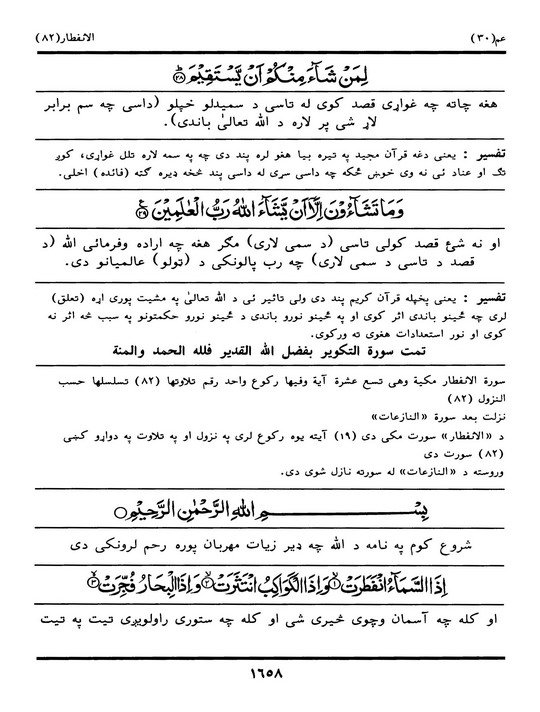 عم(٣٠)
الانفطار(٨٢)
لِمَنۡ شَآءَ مِنۡکُمۡ اَنۡ یَّسۡتَقِیۡمَ ۟ؕ﴿۲۸﴾
هغه چاته چه غواړي قصد کوی له تاسي د سمیدلو خپلو (داسی چه سم برابر
لاړ شی پر لاره د الله تعالیٰ باندی).
تفسیر : یعنی دغه قرآن مجید په تیره بیا هغو لره پند دی چه په سمه لاره تلل غواړی، کوږ
تګ او عناد ئی نه وی خوښ ځکه چه داسی سړی له داسی پند څخه ډیره ګټه (فائده) اخلی.
وَمَا تَشَآءُوۡنَ اِلَّاۤ اَنۡ یَّشَآءَ اللّٰهُ رَبُّ الۡعٰلَمِیۡنَ ﴿۲۹﴾
او نه شئ قصد کولی تاسی (د سمی لاری) مګر هغه چه اراده وفرمائی الله (د
قصد د تاسی د سمی لاری) چه رب پالونکی د (ټولو) عالمیانو دی.
تفسیر : یعنی پخپله قرآن کریم پند دی ولی تاثیر ئی د الله تعالیٰ په مشیت پوری اړه (تعلق)
لری چه ځینو باندی اثر کوی او په ځینو نورو باندی د ځینو نورو حکمتونو په سبب څه اثر نه
کوی او نور استعدادات هغوی ته ورکوی.
تمت سورة التکویر بفضل الله القدیر فلله الحمد والمنة
سورة الانفطار مکیة وهی تسع عشرة آیة وفیها رکوع واحد رقم تلاوتها (٨٢) تسلسلها حسب
النزول (٨٢)
نزلت بعد سورة «النازعات»
د «الانفطار» سورت مکی دی (١٩) آیته یوه رکوع لری په نزول او په تلاوت په دواړو کښی
(٨٢) سورت دی
وروسته د «النازعات» له سورته نازل شوی دی.
بِسۡــــــمِ اللّٰهِ الرَّحۡمٰنِ الرَّحِیۡمِ
شروع کوم په نامه د الله چه ډیر زیات مهربان پوره رحم لرونکی دی
اِذَا السَّمَآءُ انۡفَطَرَتۡ ﴿۱﴾ وَاِذَا الۡکَوَاکِبُ انۡتَثَرَتۡ ﴿۲﴾ وَاِذَا الۡبِحَارُ فُجِّرَتۡ ﴿۳﴾
او کله چه آسمان وچوی څیری شی او کله چه ستوری راولویږی تیت په تیت
١٦٥٨